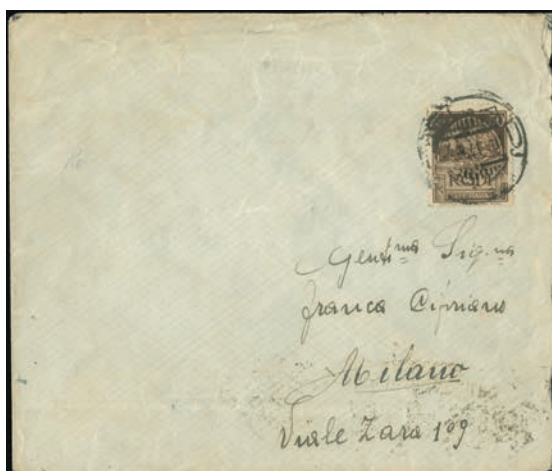 RODI
Gent.ma Sig.na
Franca Cipriano
Milano
Viale Zara 109